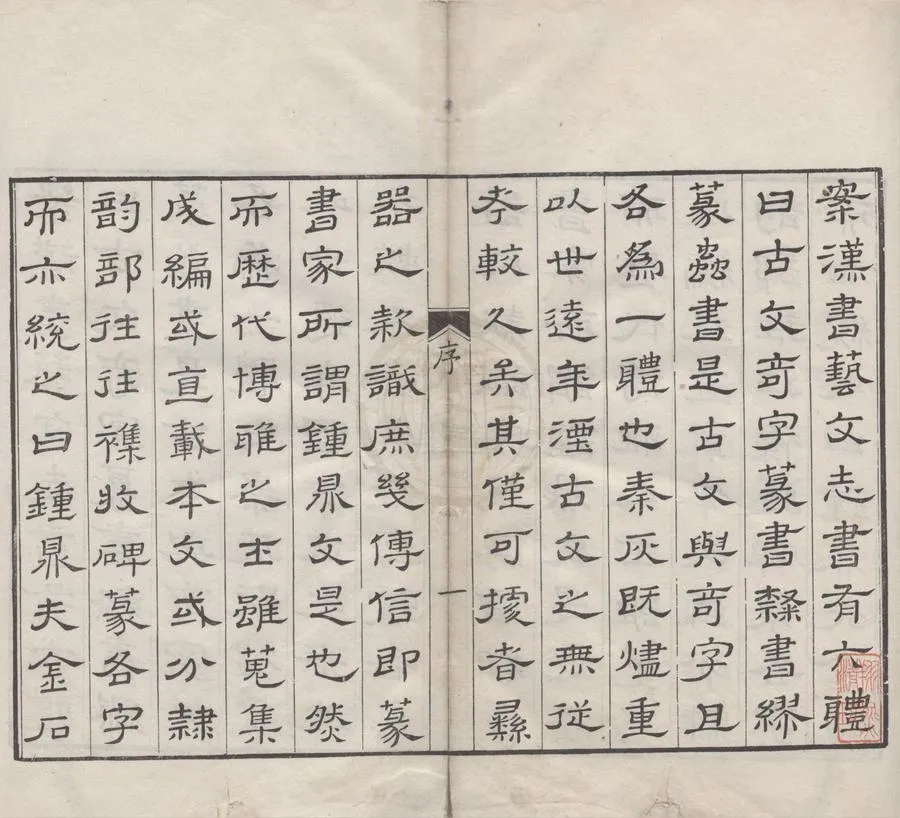 案漢書藝文志書有六體
曰古文奇字篆書隸書繆
篆蟲書是古文與奇字且
各爲一體也秦灰既燼重
以世遠年湮古文之無從
考較久矣其僅可據者彝
序
一
器之款識庶幾傳信即篆
書家所謂鍾鼎文是也然
而歷代博雅之士雖蒐集
成編或直載本文或分隸
韵部往往襍收碑篆各字
而亦統之曰鍾鼎夫金石